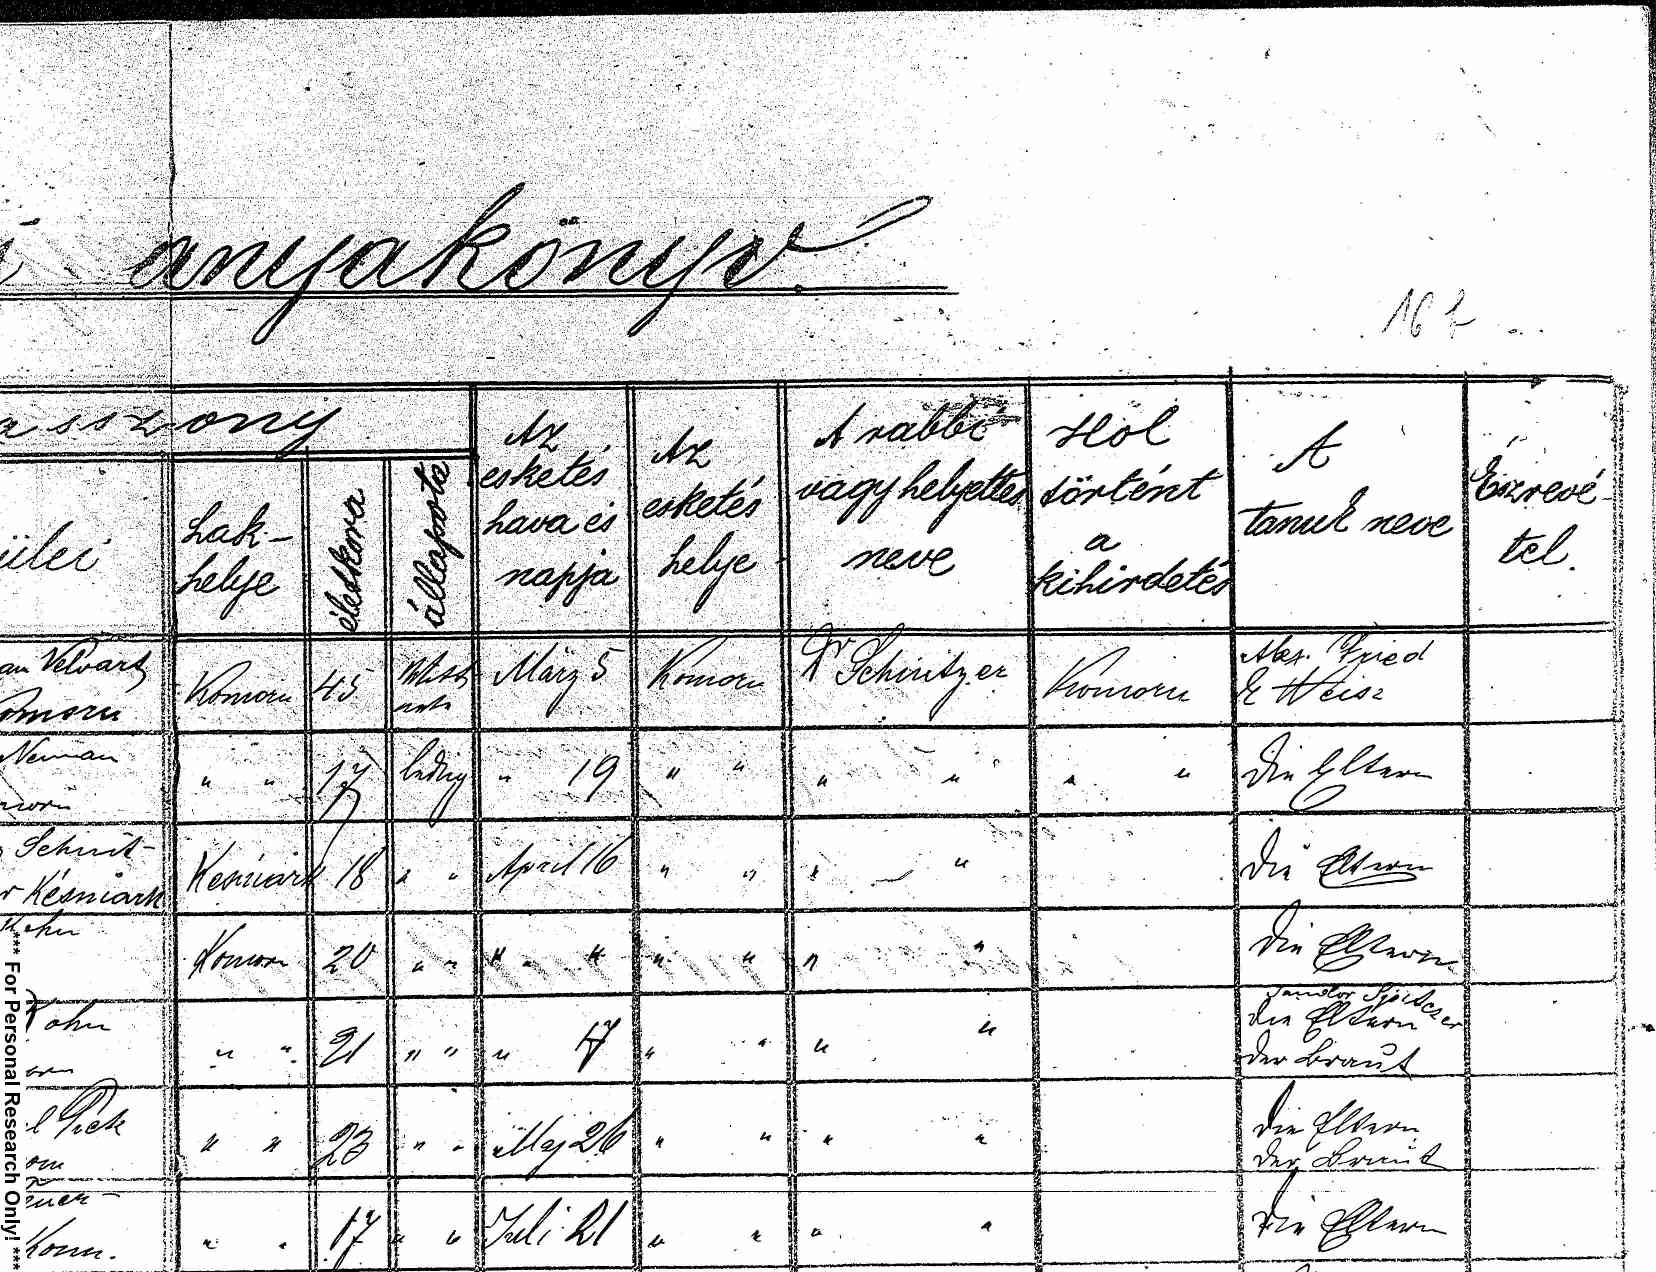 i anyakönyv.
16
asszony
ülei
Lak-
helye
életkora
állapota
Az
esketés
hava és
napja
Az
esketés
helye
A rabbi
vagy helyettes
neve
Hol
történt
a
kihirdetés
A
tanuk neve
Észrevé-
tel.
Komorn 45 März 5 Komorn Dr Schnitzer Komorn Alex. Fried
& Weisz
Neuman
" " 17 ledig " 19 " " " " " " Die Eltern
Schnit-
r Késmark Kesmark 18 " " April 16 " " " " Die Eltern
Kohn
Komorn 20 " " " " " " " " Die Eltern
Kohn
" " 21 " " " 17 " " " " Sandor Spitczer
die Eltern
der Braut
l Pick
" " 23 " " Maj 26 " " " " Die Eltern
der Braut
Kom.
" " 17 " " Juli 21 " " " " Die Eltern
*** For Personal Research Only! ***